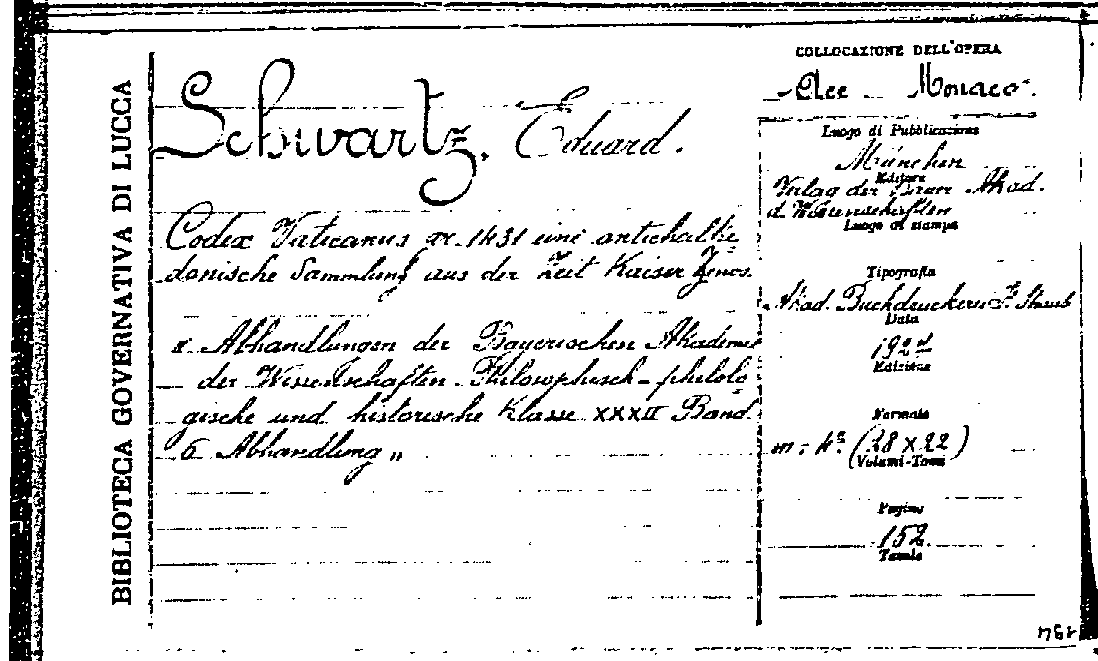 BIBLIOTECA GOVERNATIVA DI LUCCA
Schwartz, Eduard.
Codex Vaticanus gr. 1431 eine antichalke
donische Sammlung aus der Zeit Kaiser Zenos.
"Abhandlungen der Bayerischen Akademie
der Wissenschaften Philosophisch-philolo
gische und historische Klasse XXXII Band
6 Abhandlung"
COLLOCAZIONE DELL'OPERA
Acc Monaco.
Luogo di Pubblicazione
München
Editore
Verlag der Bayer. Akad.
d. Wissenschaften
Luogo di stampa
Tipografia
Akad. Buchdruckerei F. Straub
Data
Edizione
Formato
in-4° (28 X 22)
(Volumi-Tomi
Pagine
152.
Tavole